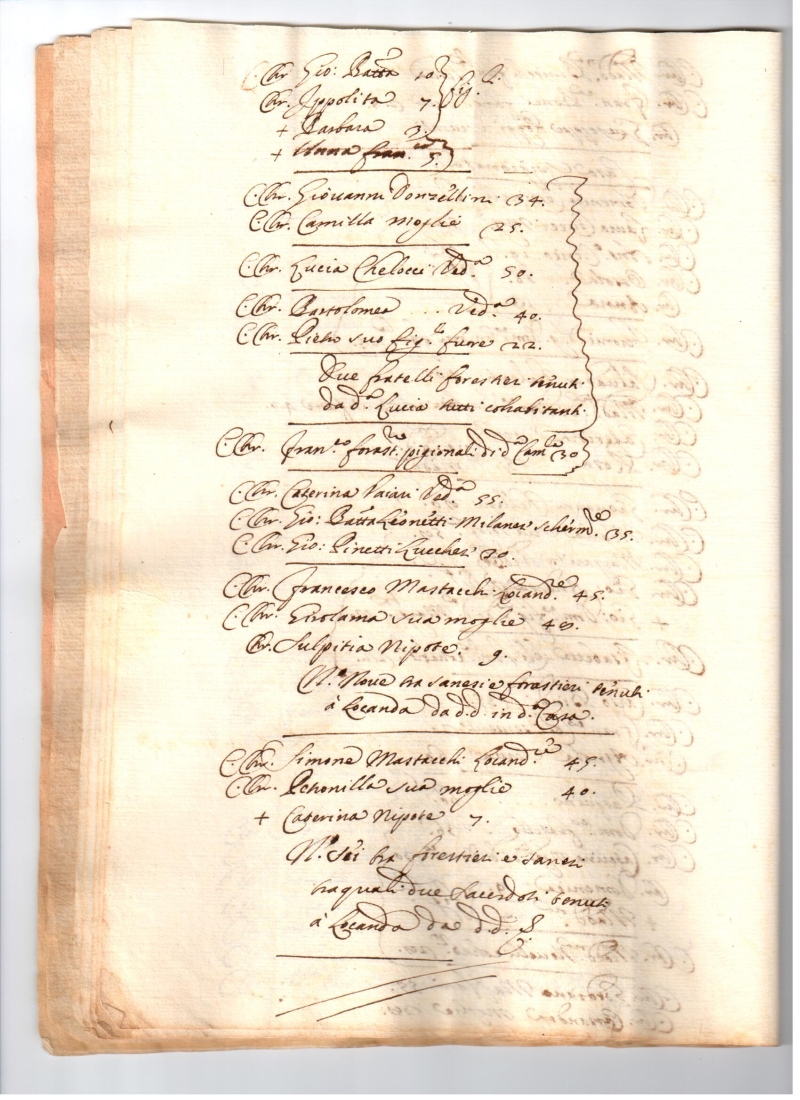 C. Chr. Gio: Batta 10.
Chr. Ippolita 7. figli.
+ Barbara 3.
+ Anna Fran.ca 5.
C. Chr. Giovanni Donzellini 34.
C. Chr. Camilla moglie 25.
C. Chr. Lucia Chelocci Ved.a 50.
C. Chr. Bartolomea .. Ved.a 40.
C. Chr. Pietro suo fig.lo fuore 22.
Due fratelli forestieri tenuti
da d.a Lucia tutti cohabitanti.
C. Chr. Fran.co forast.ro pigionali di d.a Cam.la 30
C. Chr. Caterina Vaiari Ved.a 55.
C. Chr. Gio: Batta Leonetti Milanes Scherm.re 35.
C. Chr. Gio: Pinetti Lucches 20.
C. Chr. Francesco Mastacchi Locand.re 45.
C. Chr. Girolama sua moglie 40.
Chr. Sulpitia Nipote. 9.
N.o Nove tra sanesi e forestieri tenuti
à Locanda da d.d. in d.a Casa.
C. Chr. Simone Mastacchi Locand.re 45.
C. Chr. Petronilla sua moglie 40.
+ Caterina Nipote 7.
N.o Sei tra forestieri e sanesi
tra quali due Sacerdoti tenuti
à Locanda da d.d.